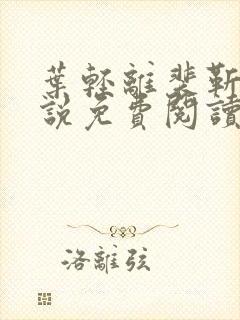 葉輕離裴靳
説免費閱讀
洛離弦